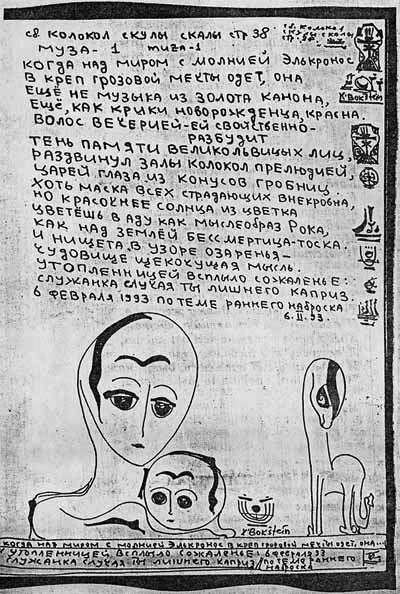 св КОЛОКОЛ СКУЛЫ СКАЛЫ стр 38
МУЗА - 1 muza-1
КОГДА НАД МИРОМ С МОЛНИЕЙ ЭЛЬКРОНОС
В КРЕП ГРОЗОВОЙ МЕЧТЫ ОДЕТ, ОНА
ЕЩЁ НЕ МУЗЫКА ИЗ ЗОЛОТА КАНОНА,
ЕЩЁ, КАК КРИКИ НОВОРОЖДЕНЦА, КРАСНА.
ВОЛОС ВЕЧЕРИЕЙ-ЕЙ СВОЙСТВЕННО-
РАЗБУДИТ
ТЕНЬ ПАМЯТИ ВЕЛИКОЛЬВИЦЫХ ЛИЦ,
РАЗДВИНУЛ ЗАЛЫ КОЛОКОЛ ПРЕЛЮДИЕЙ,
ЦАРЕЙ ГЛАЗА ИЗ КОНУСОВ ГРОБНИЦ.
ХОТЬ МАСКА ВСЕХ СТРАДАЮЩИХ ВНЕКРОВНА,
НО КРАСОКНЕЕ СОЛНЦА ИЗ ЦВЕТКА
ЦВЕТЁШЬ В АДУ КАК МЫСЛЕОБРАЗ РОКА,
КАК НАД ЗЕМЛЁЙ БЕССМЕРТИЦА-ТОСКА.
И НИЩЕТА В УЗОРЕ ОЗАРЕНЬЯ-
ЧУДОВИЩЕ ЩЕКОЧУЩАЯ МЫСЛЬ.
УТОПЛЕННИЦЕЙ ВСПЛЫЛО СОЖАЛЕНЬЕ:
СЛУЖАНКА СЛУХАЯ ТЫ ЛИШНЕГО КАПРИЗ.
6 ФЕВРАЛЯ 1993 ПО ТЕМЕ РАННЕГО НАБРОСКА
6.II.93
св. КОЛОКОЛ
СКУЛЫ СКАЛЫ
стр. 38.
K·Bokstein
Bokstein
КОГДА НАД МИРОМ С МОЛНИЕЙ ЭЛЬКРОНОС В КРЕП ГРОЗОВОЙ МЕЧТЫ ОДЕТ, ОНА...
УТОПЛЕННИЦЕЙ ВСПЛЫЛО СОЖАЛЕНЬЕ: 6 февраля 93
СЛУЖАНКА СЛУХАЯ ТЫ ЛИШНЕГО КАПРИЗ / ПО ТЕМЕ РАННЕГО
НАБРОСКА